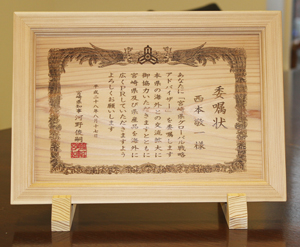 委嘱状
西本敬一 様
あなたに「宮崎県グローバル戦略
アドバイザー」を委嘱します
本県の海外との交流拡大に
御協力いただきますとともに
宮崎県及び県産品を海外に
広くPRしていただきますよう
よろしくお願いします
平成二十八年八月十七日
宮崎県知事 河野俊嗣